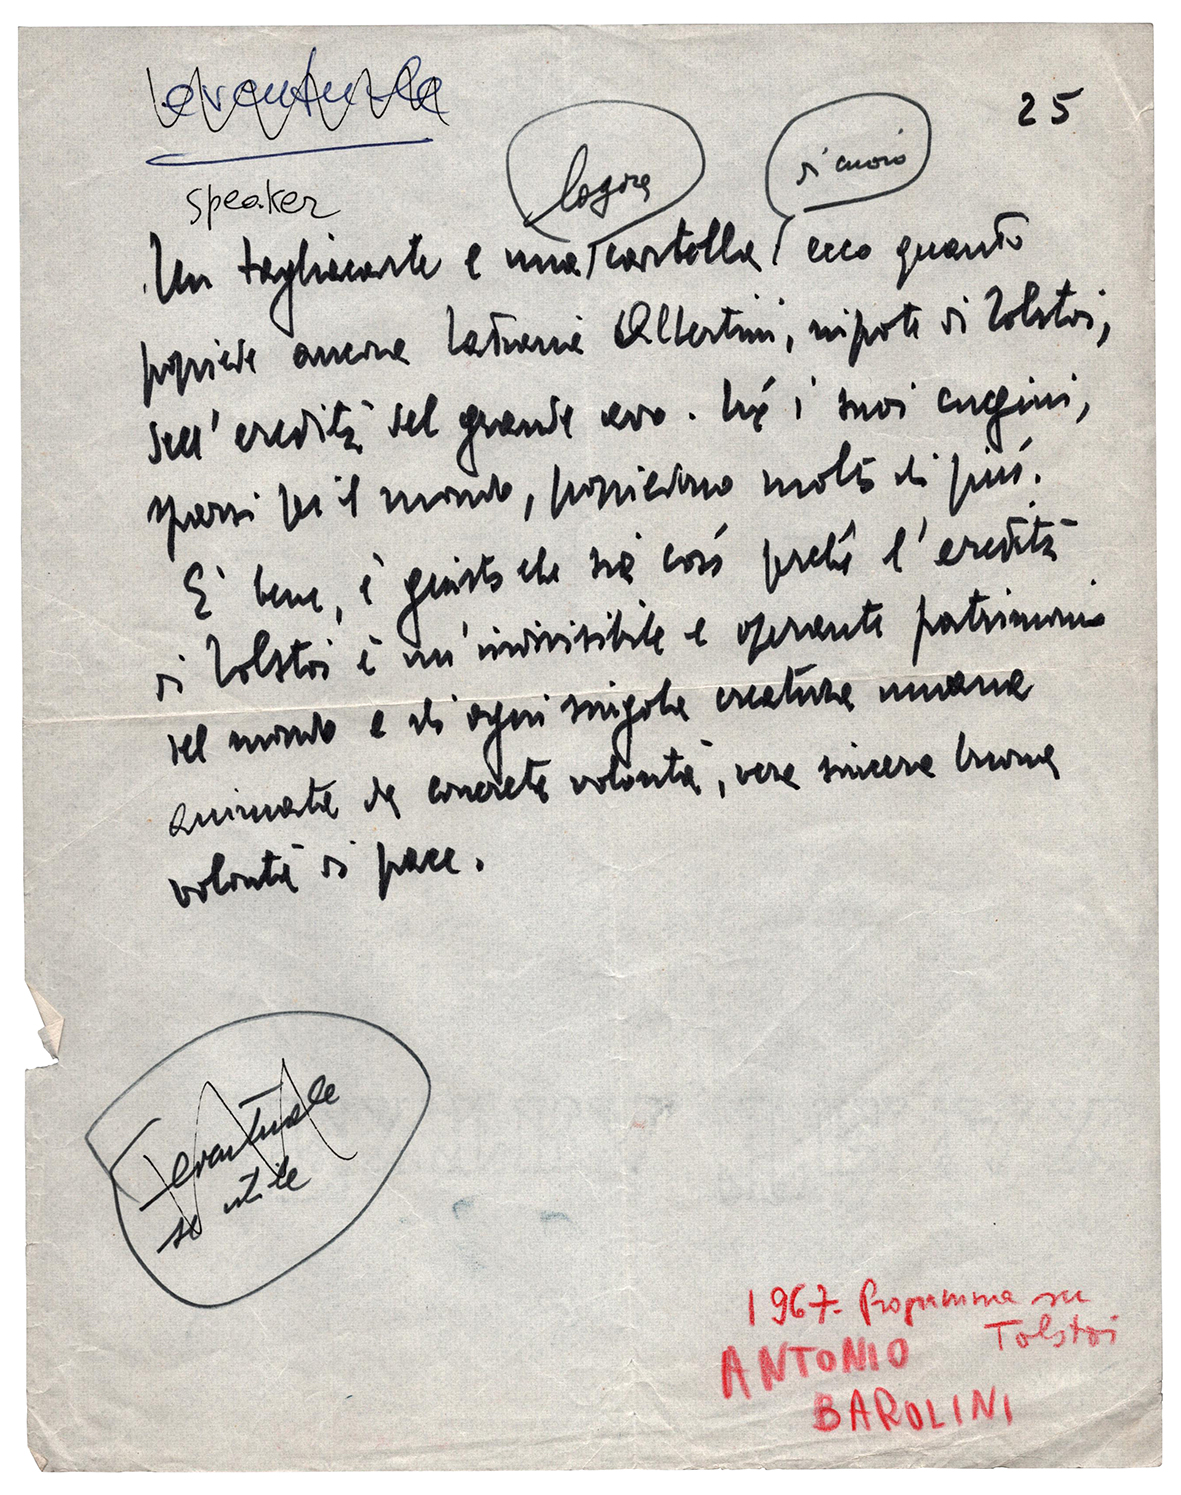 eventuale
25
speaker
logora
di cuoio
Un tagliacarte e una cartella ecco quanto
possiede ancora Tatiana Albertini, nipote di Tolstoi,
dell'eredità del grande avo. Né i suoi cugini,
sparsi per il mondo, possiedono molto di più.
E' bene, è giusto che sia così perché l'eredità
di Tolstoi è un'indivisibile e operante patrimonio
del mondo e di ogni singola creatura umana
animata da concreta volontà, vera sincera buona
volontà di pace.
eventuale
se utile
1967- Programma su
Tolstoi
ANTONIO
BAROLINI